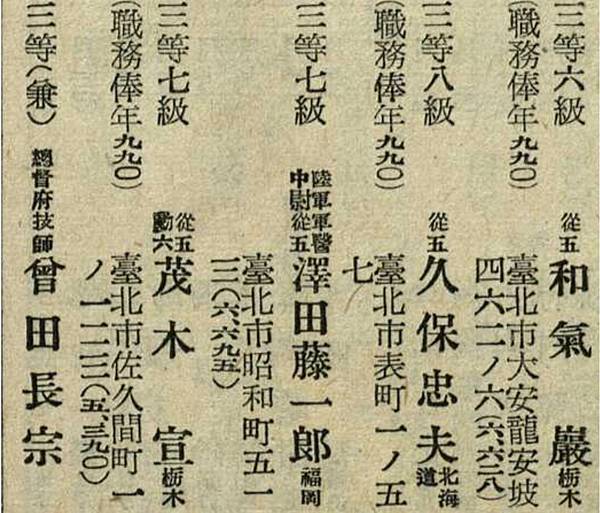 三等六級 從五 和氣 巖 栃木
(職務俸年九九〇) 臺北市大安龍安坡
四六二ノ六(六六二八)
三等八級 從五 久保忠夫 北海道
(職務俸年九九〇) 臺北市表町一ノ五
七
三等七級 陸軍軍醫中尉從五 澤田藤一郎 福岡
臺北市昭和町五一
三(六六九五)
三等七級 從五勳六 茂木 宣 栃木
(職務俸年九九〇) 臺北市佐久間町一
ノ一二三(五、三九〇)
三等(兼) 總督府技師 曾田長宗